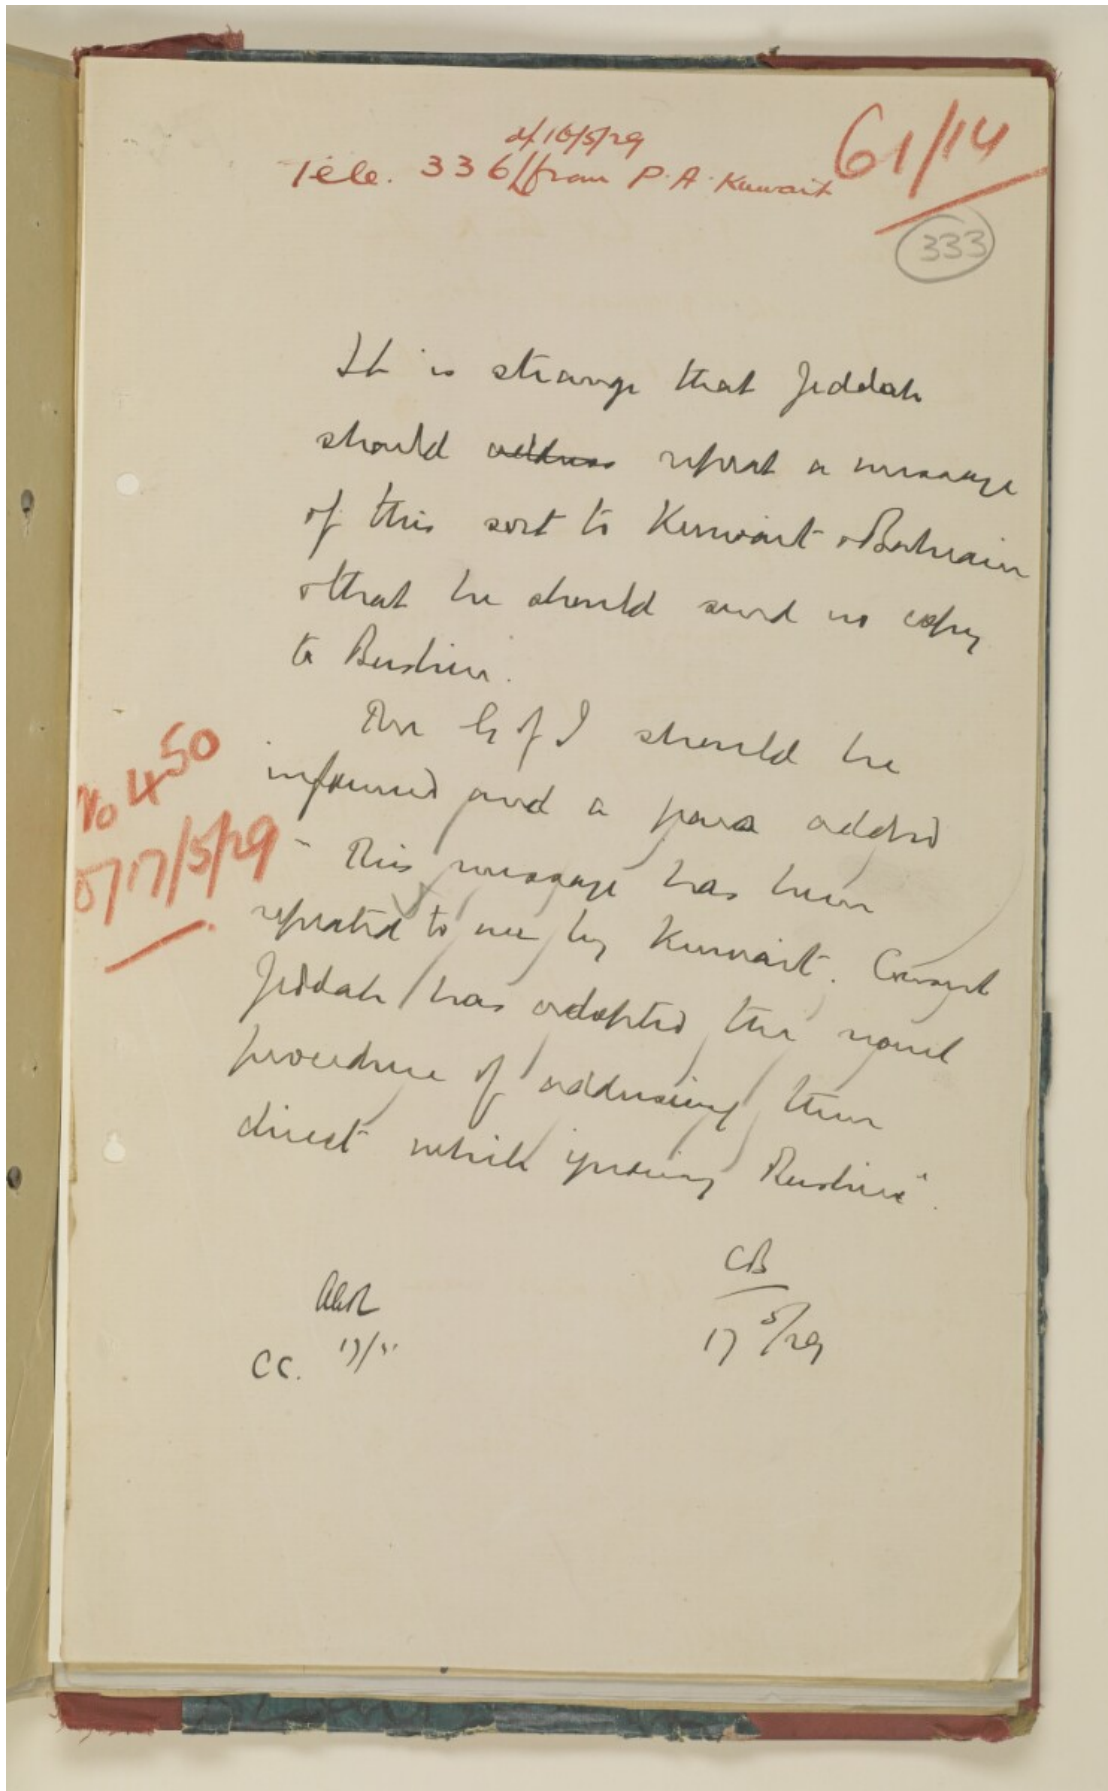 of 16/5/29
Tele. 336 from P.A. Kuwait
61/14
333
It is strange that Jeddah
should address repeat a message
of this sort to Kuwait & Bahrain
& that he should send no copy
to Bushire.
The G of I should be
informed and a para added
No 450
of 17/5/29
"This message has been
repeated to me by Kuwait. Consul
Jeddah has adopted the novel
procedure of addressing them
direct while ignoring Bushire".
CB
17 5/29
17/5
CC.